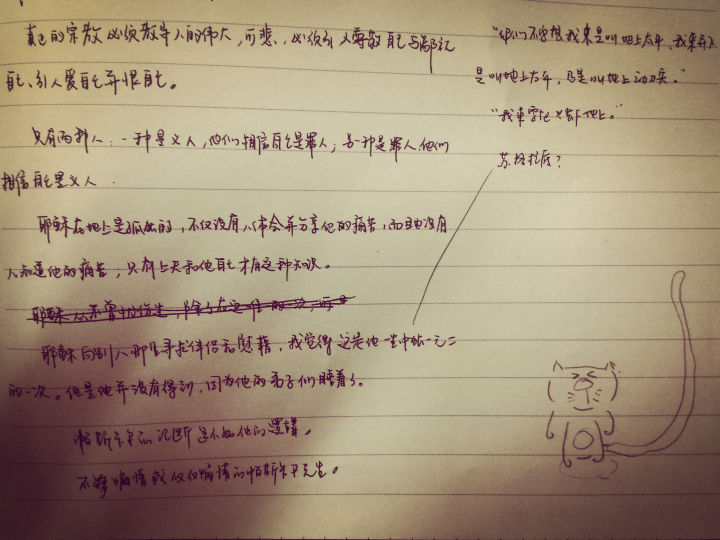 真正的宗教必须教导人的伟大,可悲,必须引人尊敬自己与鄙视
自己、引人爱自己并恨自己。
只有两种人:一种是义人,他们相信自己是罪人;另一种是罪人他们
相信自己是义人.
耶稣在地上是孤独的,不仅没有人体会并分享他的痛苦,而且也没有
人知道他的痛苦;只有上天和他自己才有这种知识。
耶稣从不曾
耶稣向别人那里寻求伴侣和慰藉,我觉得这是他一生中独一无二
的一次。但是他并没有得到,因为他的弟子们睡着了。
帕斯卡尔的论断是不如他的逻辑。
不够煽情或仅仅煽情的帕斯卡尔先生。
"你们不要想我来是叫地上太平、我来并不
是叫地上太平,乃是叫地上动刀兵。"
"我来要把火丢在地上。"
苏格拉底?